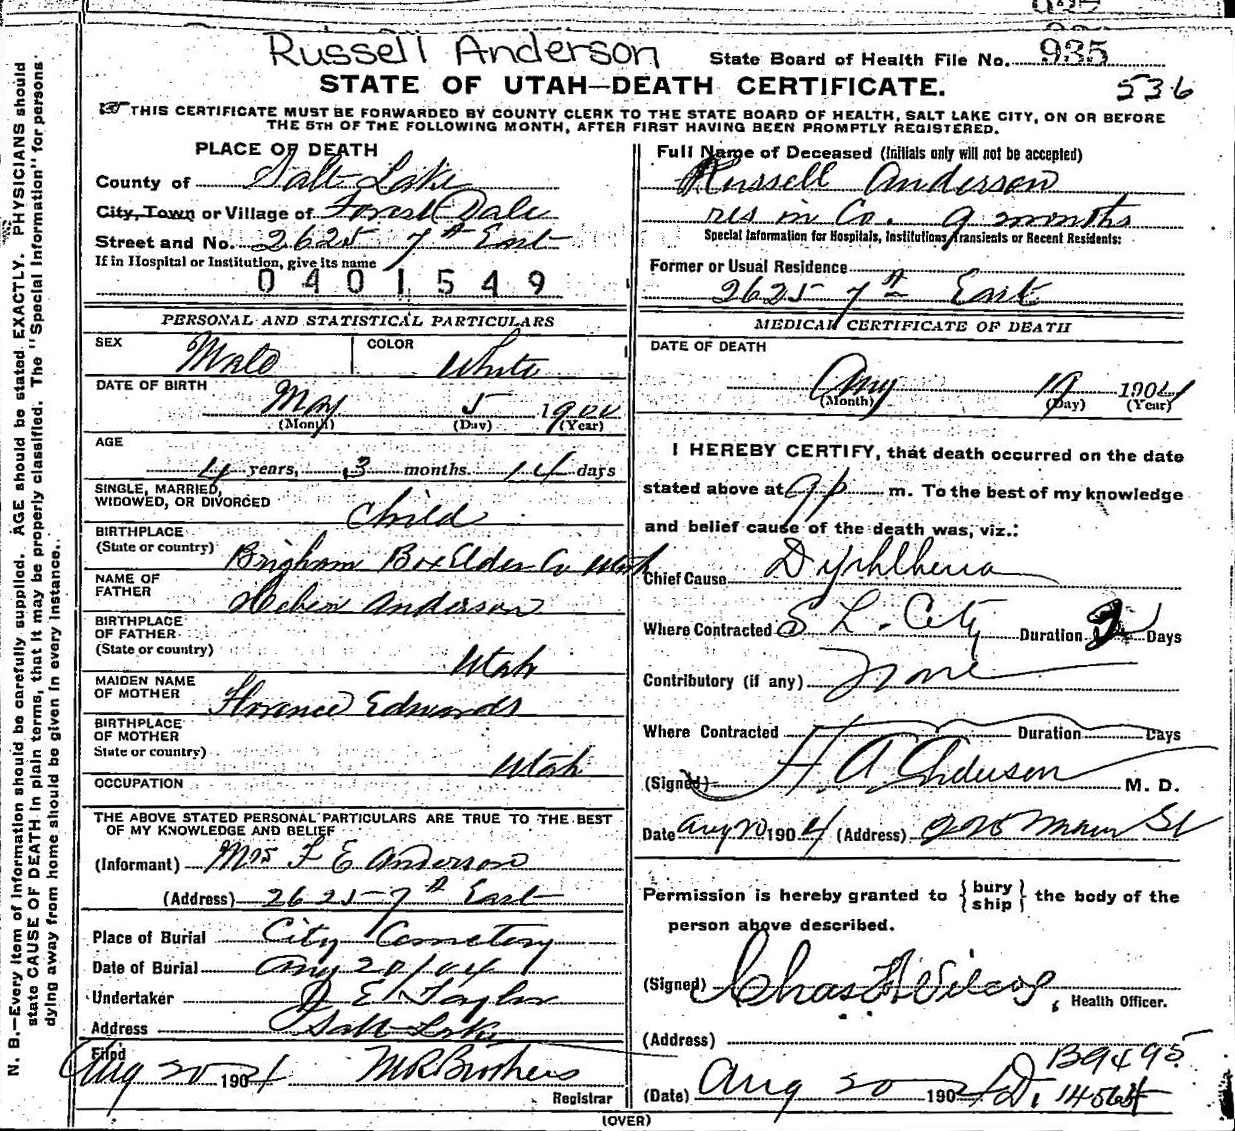 Russell Anderson
State Board of Health File No. 935
STATE OF UTAH—DEATH CERTIFICATE.
536
THIS CERTIFICATE MUST BE FORWARDED BY COUNTY CLERK TO THE STATE BOARD OF HEALTH, SALT LAKE CITY, ON OR BEFORE
THE 5TH OF THE FOLLOWING MONTH, AFTER FIRST HAVING BEEN PROMPTLY REGISTERED.
N. B.—Every item of information should be carefully supplied. AGE should be stated EXACTLY. PHYSICIANS should
state CAUSE OF DEATH in plain terms, that it may be properly classified. The "Special Information" for persons
dying away from home should be given in every instance.
PLACE OF DEATH
County of Salt Lake
City, Town or Village of Forest Dale
Street and No. 2625 7th East
If in Hospital or Institution, give its name
0401549
PERSONAL AND STATISTICAL PARTICULARS
SEX Male COLOR White
DATE OF BIRTH
May 5 1900
(Month) (Day) (Year)
AGE
4 years, 3 months. 14 days
SINGLE, MARRIED,
WIDOWED, OR DIVORCED Child
BIRTHPLACE
(State or country) Brigham Box Elder Co Utah
NAME OF
FATHER Heber Anderson
BIRTHPLACE
OF FATHER
(State or country) Utah
MAIDEN NAME
OF MOTHER Florence Edwards
BIRTHPLACE
OF MOTHER
State or country) Utah
OCCUPATION
THE ABOVE STATED PERSONAL PARTICULARS ARE TRUE TO THE BEST
OF MY KNOWLEDGE AND BELIEF
(Informant) Mrs F E Anderson
(Address) 2625 7th East
Place of Burial City Cemetery
Date of Burial Aug 20/04
Undertaker E Taylor
Address Salt Lake
Filed
Aug 20 1904 Brothers
Registrar
Full Name of Deceased (Initials only will not be accepted)
Russell Anderson
res in Co. 9 months
Special Information for Hospitals, Institutions, Transients or Recent Residents:
Former or Usual Residence
2625 7th East
MEDICAL CERTIFICATE OF DEATH
DATE OF DEATH
Aug 19 1904
(Month) (Day) (Year)
I HEREBY CERTIFY, that death occurred on the date
stated above at 9 p m. To the best of my knowledge
and belief cause of the death was, viz.:
Chief Cause Dyphtheria
Where Contracted S L. City Duration 2 Days
Contributory (if any) None
Where Contracted Duration Days
(Signed) H A Anderson M. D.
Date Aug 20 1904 (Address) Main St
Permission is hereby granted to { bury ship } the body of the
person above described.
(Signed) Chas Wilcox, Health Officer.
(Address)
B9495
(Date) Aug 20 1904 D.
(OVER)